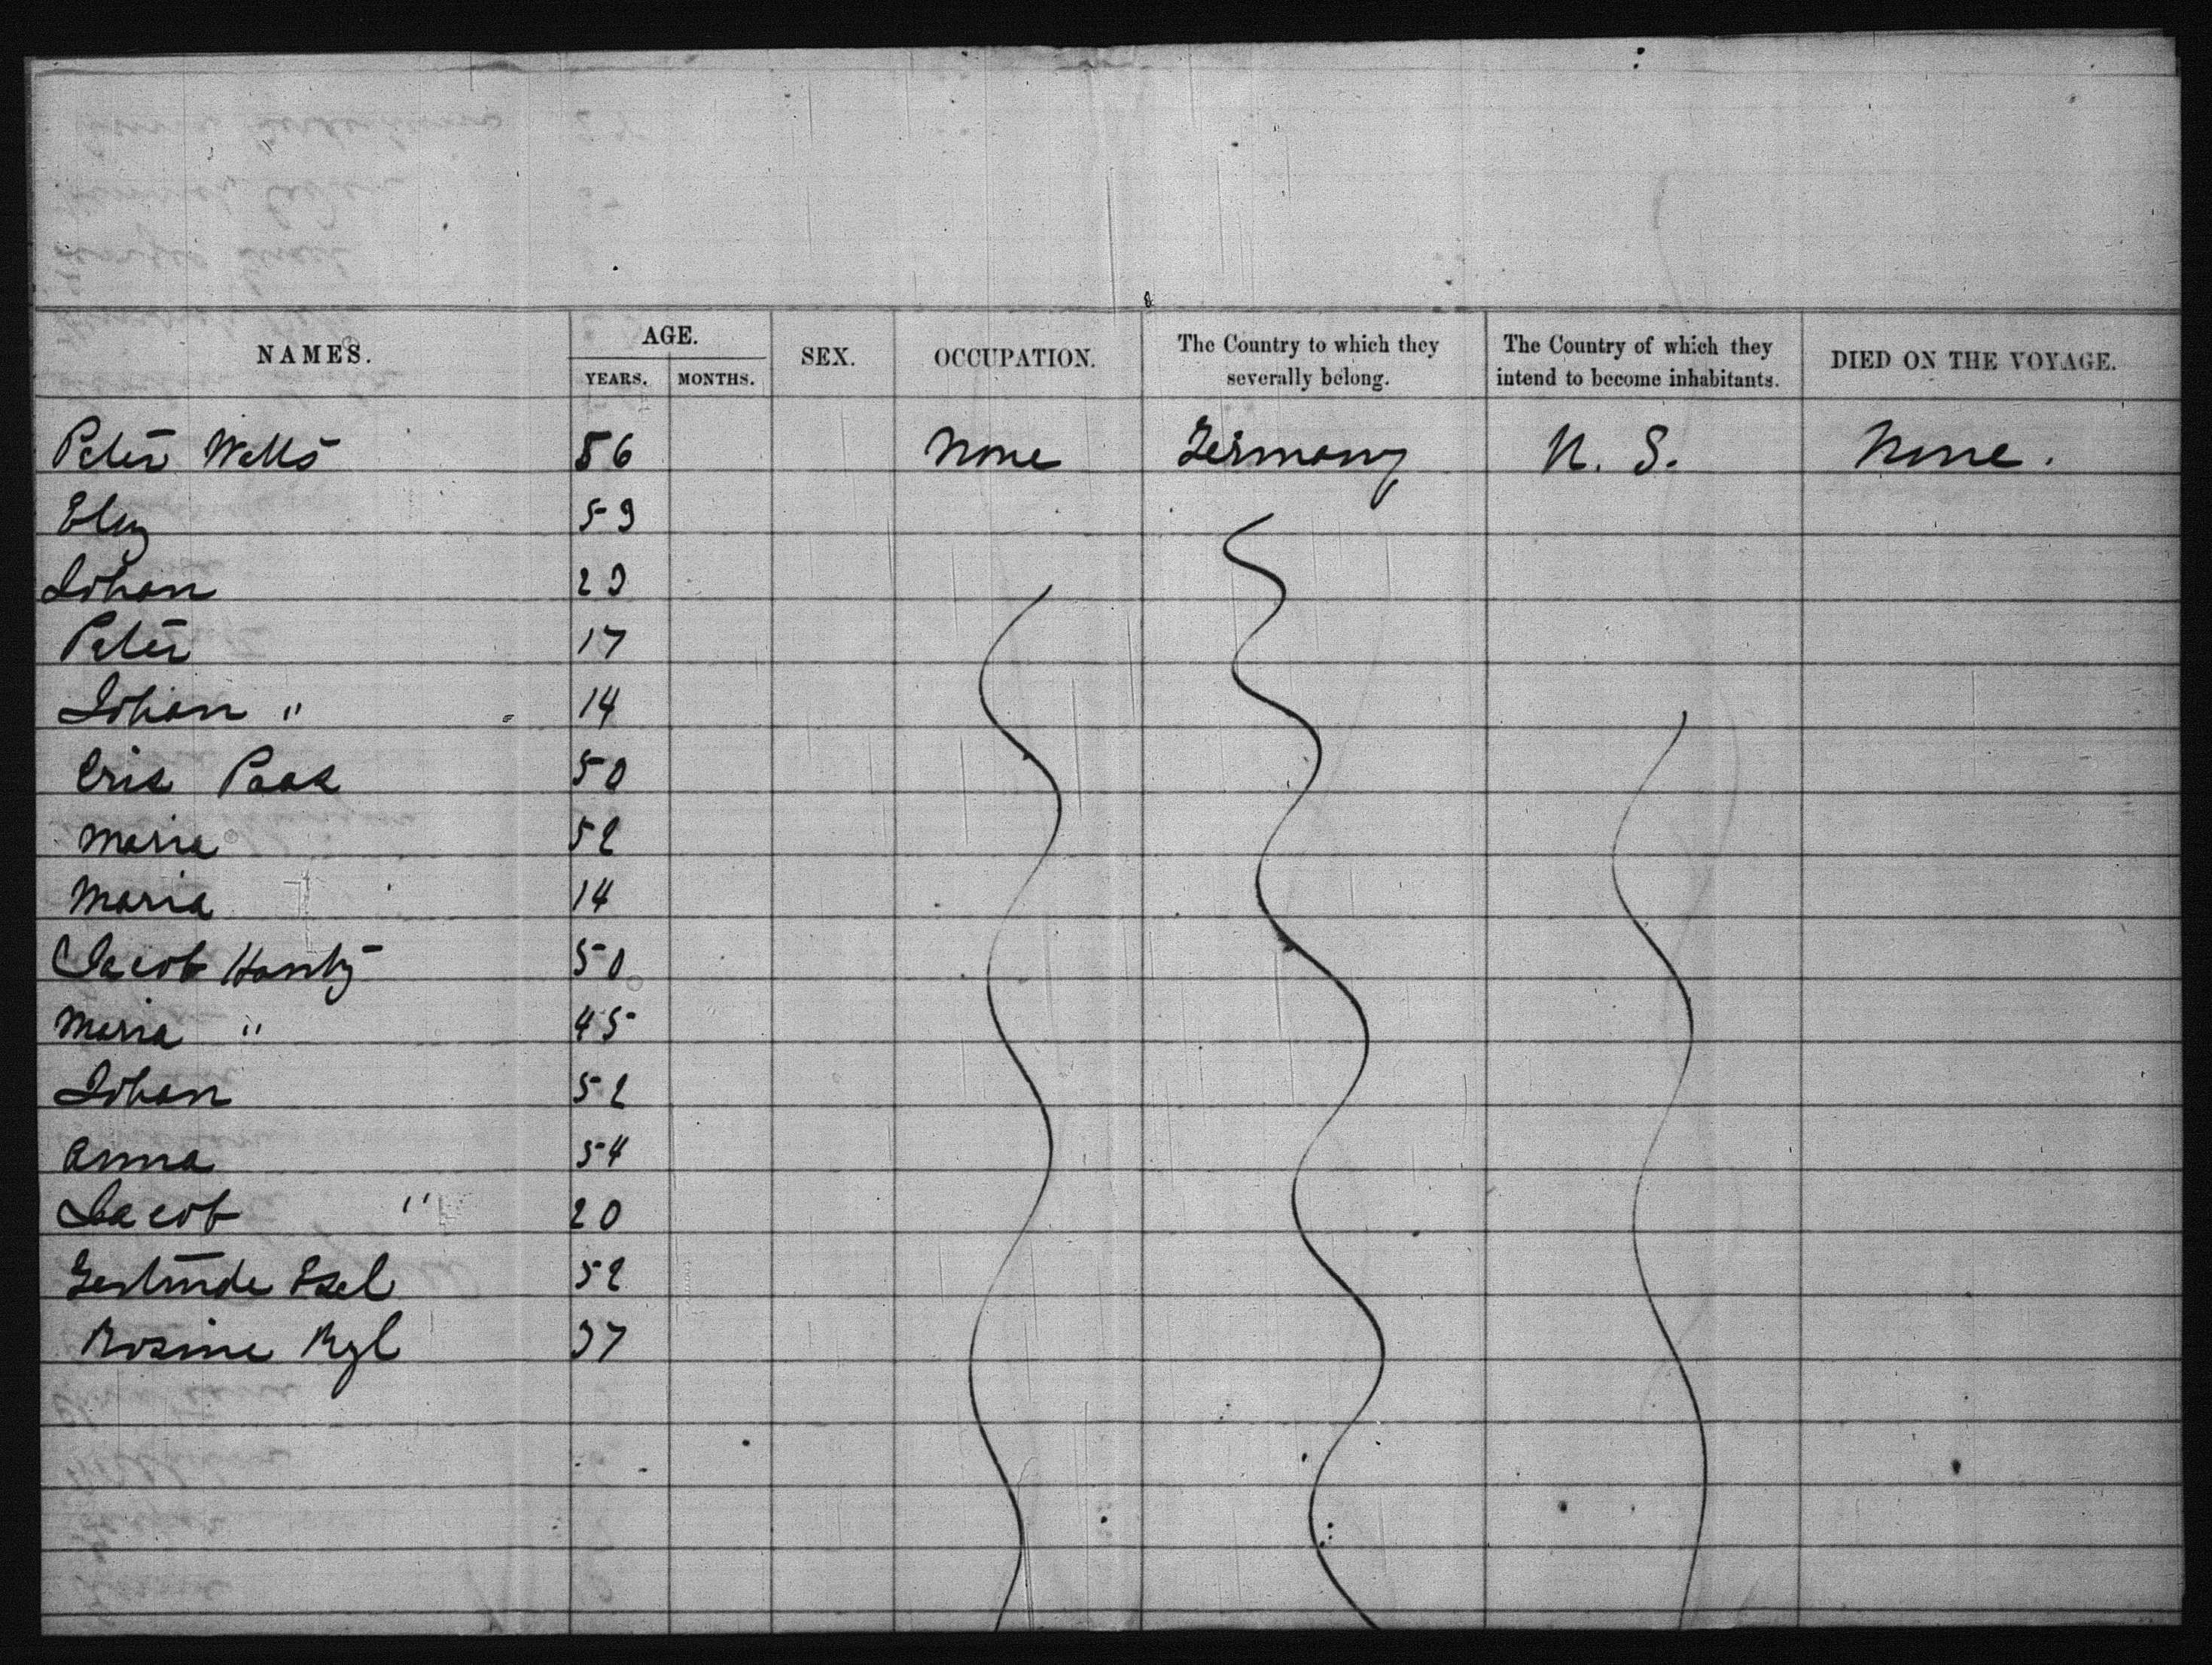 NAMES. AGE. SEX. OCCUPATION. The Country to which they severally belong. The Country of which they intend to become inhabitants. DIED ON THE VOYAGE.
YEARS. MONTHS.
Peter Walls 56 None Germany U. S. None.
Eliz 59
Johan 23
Peter 17
Johan " 14
Cris Paas 50
Maria 52
Maria 14
Jacob 50
Maria " 45
Johan 52
Anna 54
Jacob " 20
Gertrude Esel 52
Rosine 37